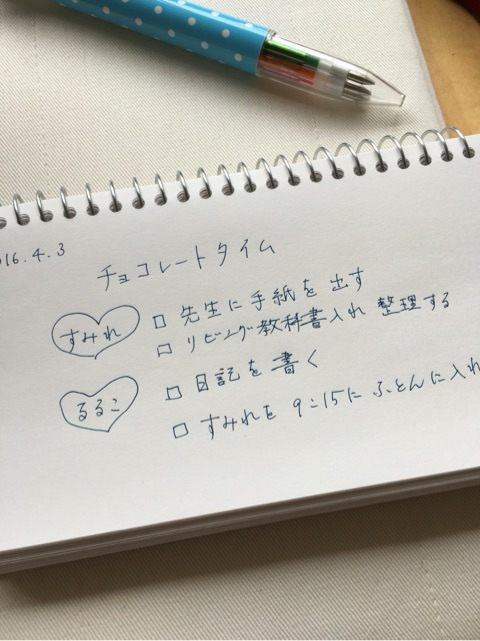 16.4.3
チョコレートタイム
すみれ
□ 先生に手紙を出す
□ リビング教科書入れ 整理する
るるこ
□ 日記を書く
□ すみれを 9:15に ふとんに入れ